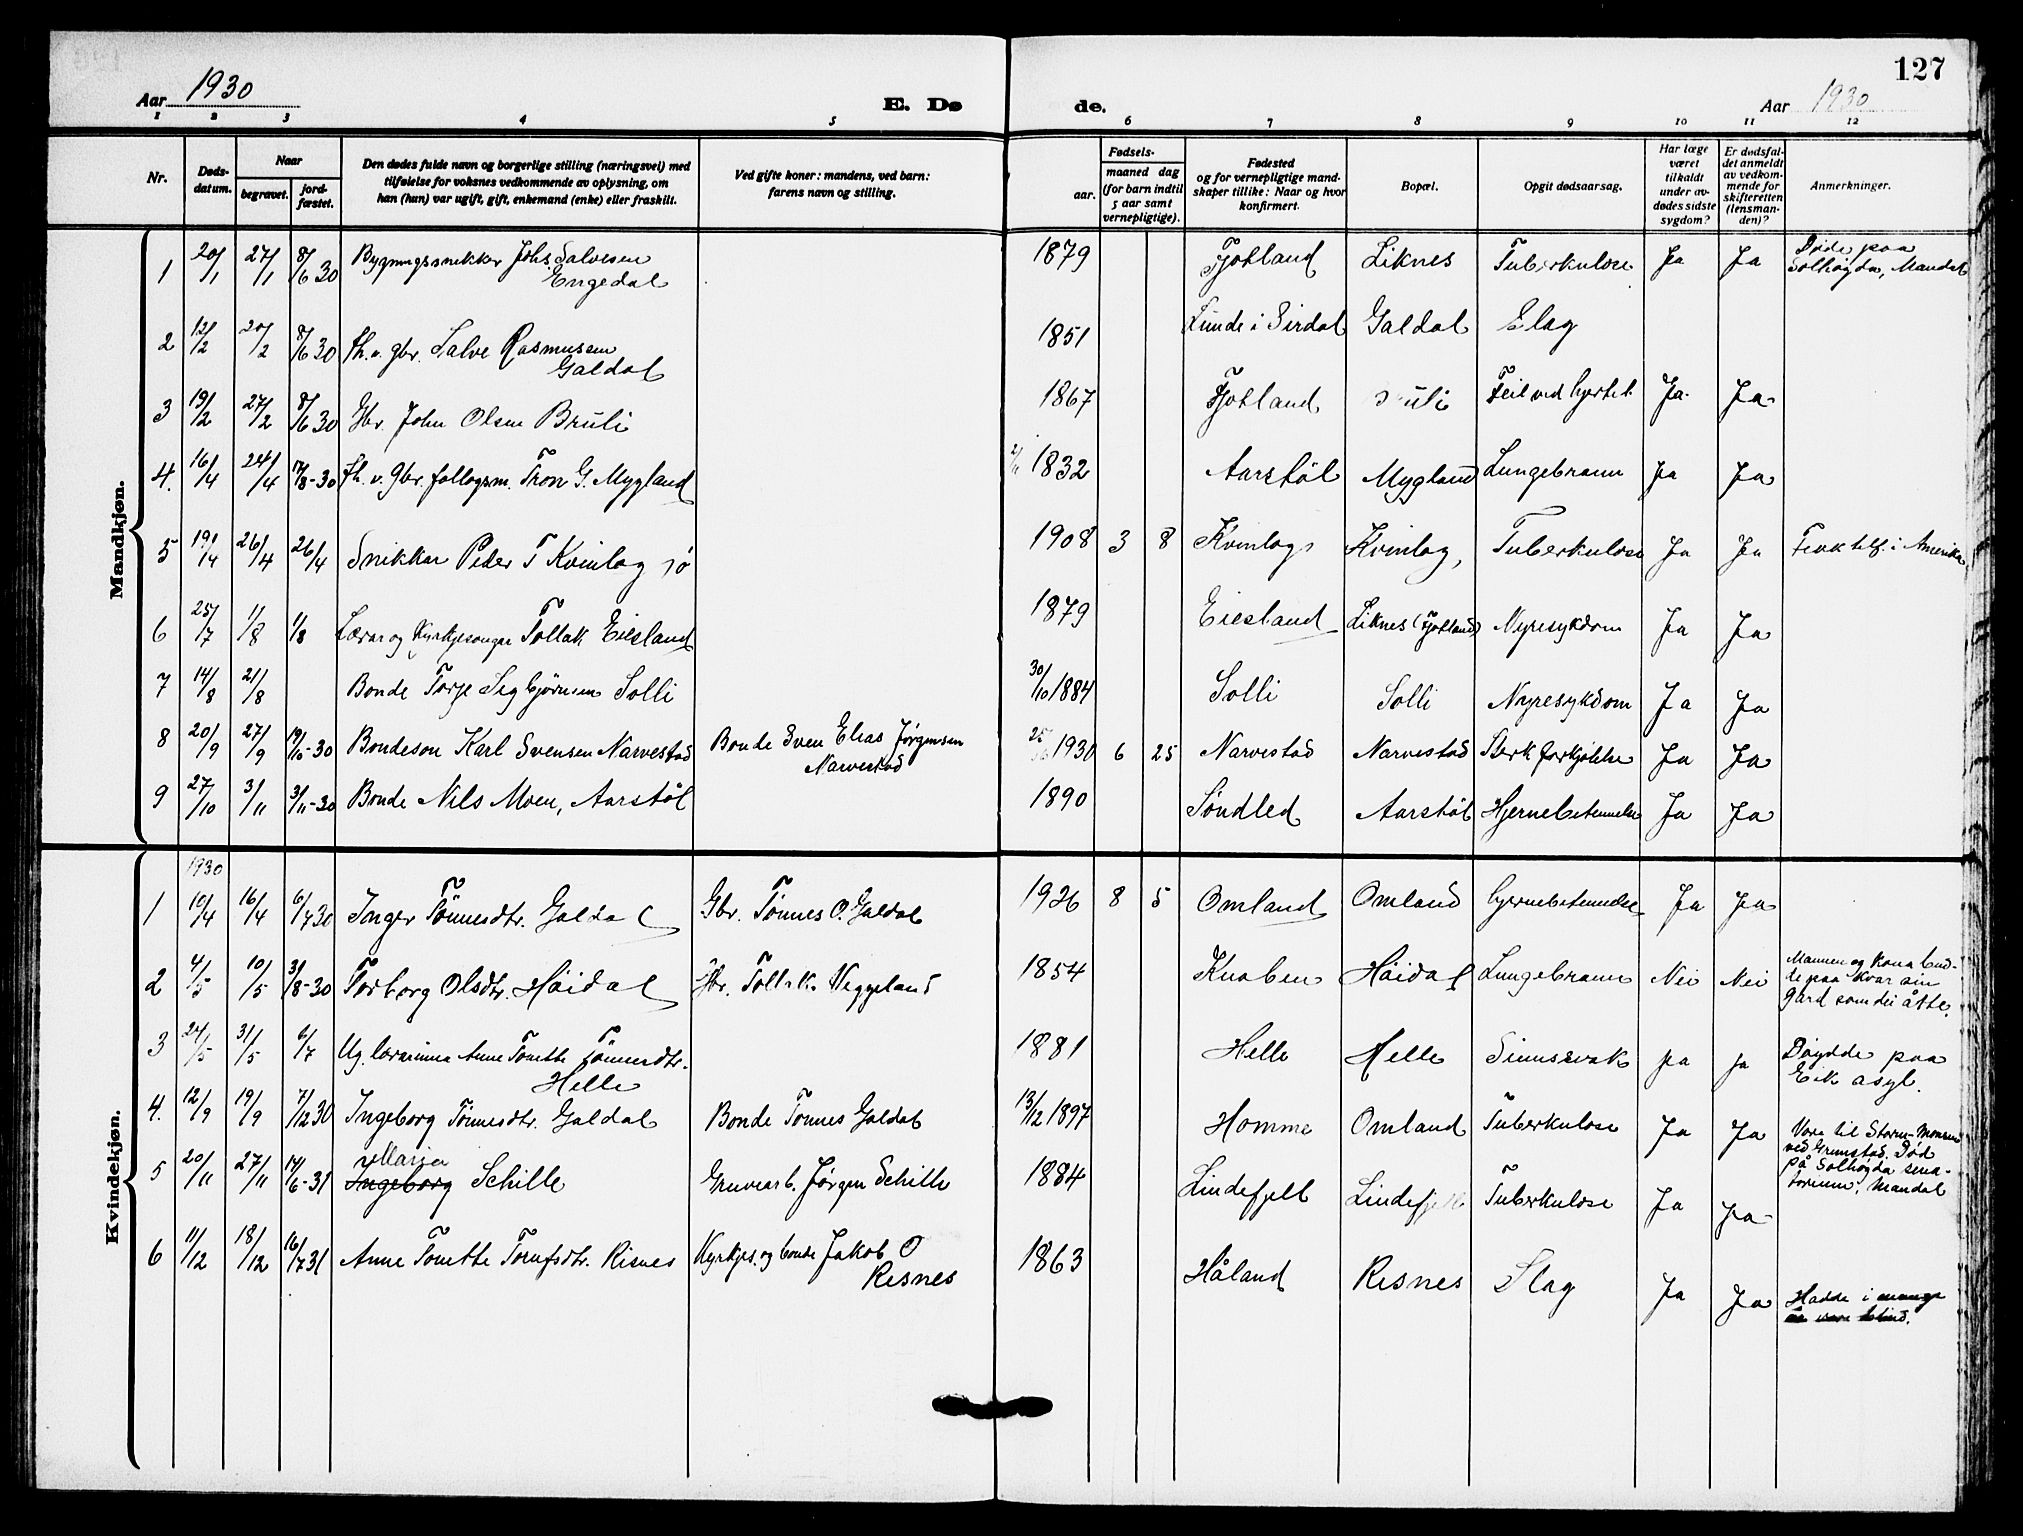 127
Aar 1930
E. Dø
de.
Aar 1930
1 2 3 4 5 6 7 8 9 10 11 12
Nr.
Døds-
datum.
Naar
begravet.
jord-
fæstet.
Den dødes fulde navn og borgerlige stilling (næringsvei) med
tilføielse for voksnes vedkommende av oplysning, om
han (hun) var ugift, gift, enkemand (enke) eller fraskilt.
Ved gifte koner: mandens, ved barn:
farens navn og stilling.
Fødsels-
aar.
maaned dag
(for barn indtil
5 aar samt
vernepligtige).
Fødested
og for vernepligtige mand-
skaper tillike: Naar og hvor
konfirmert.
Bopæl.
Opgit dødsaarsag.
Har læge
været
tilkaldt
under av-
dødes sidste
sygdom?
Er dødsfal-
det anmeldt
av vedkom-
mende for
skifteretten
(lensman-
den)?
Anmerkninger.
Mandkjøn.
1 20/1 27/1 8/6 30 Bygningssnikker Johs Salvesen Engedal 1879 Fjotland Liknes Tuberkulose Ja Ja Døde paa Solhøgda, Mandal
2 12/2 20/2 8/6 30 fh. v. gbr. Salve Rasmusen Galdal 1851 Lunde i Sirdal Galdal Slag
3 19/2 27/2 8/6 30 Gbr. John Olsen Bruli 1867 Fjotland Feil ved hjertet Ja. Ja.
4. 16/4 24/4 17/8-30 fh. v. gbr. follogsm. Tron G. Mygland 1832 Aarstøl Mygland Lungebrann Ja Ja
5 19/4 26/4 26/4 Snikkar Peder T Kvinlog 1908 3 8 Kvinlog Kvinlog, Tuberkulose Ja Ja i Amerika
6 25/7 1/8 1/8 Lærar og Kyrkjesonger Tollak Eiesland 1879 Eiesland Liknes (Fjotland) Nyresykdom Ja Ja
7 14/8 21/8 Bonde Torje Sigbjørnsen Solli 30/10 1884 Solli Solli Nyresykdom Ja Ja
8 20/9 27/9 19/10-30 Bondeson Karl Svensen Narvestad Bonde Sven Elias Jørgensen Narvestad 1930 6 25 Narvestad Narvestad Sterk forkjølelse Ja Ja
9 27/10 3/11 3/11-30 Bonde Nils Moen, Aarstøl 1890 Søndled Aarstøl Hjernebetennelse Ja Ja
Kvindekjøn.
1930
1 10/4 16/4 6/7 30 Inger Tønnesdtr. Galdal Gbr. Tønnes O. Galdal 1926 8 5 Omland Omland hjernebetennelse Ja Ja
2 4/5 10/5 31/8-30 Torborg Olsdtr. Høidal Gbr. Tollak Veggeland 1854 Knaben Høidal Lungebrann Nei Nei Mannen og Kona bud-
de paa kvar sin
gard som dei åtte.
3 24/5 31/5 6/7 Ug. lærarinna Anne Tonette Tønnesdtr. Helle 1881 Helle Helle Sinnssvak ja ja Døydde paa
Eik asyl.
4. 12/9 19/9 7/12 30 Ingeborg Tønnesdtr. Galdal Bonde Tønnes Galdal 13/12 1897 Homme Omland Tuberkulose Ja Ja Vore til Storm-Monsen
ved Grimstad. Død
på Solhøgda sena-
torium, Mandal
5 20/11 27/11 14/6-31 Marja
Ingeborg Schille Gruvearb. Jørgen Schille 1884 Lindefjell Lindefjell Tuberkulose Ja Ja
6 11/12 18/12 16/7 31 Anne Tonette Torufsdtr. Risnes Kyrkjes. og bonde Jakob O Risnes 1863 Håland Risnes Slag Ja Ja Hadde i mange
år vore blind.